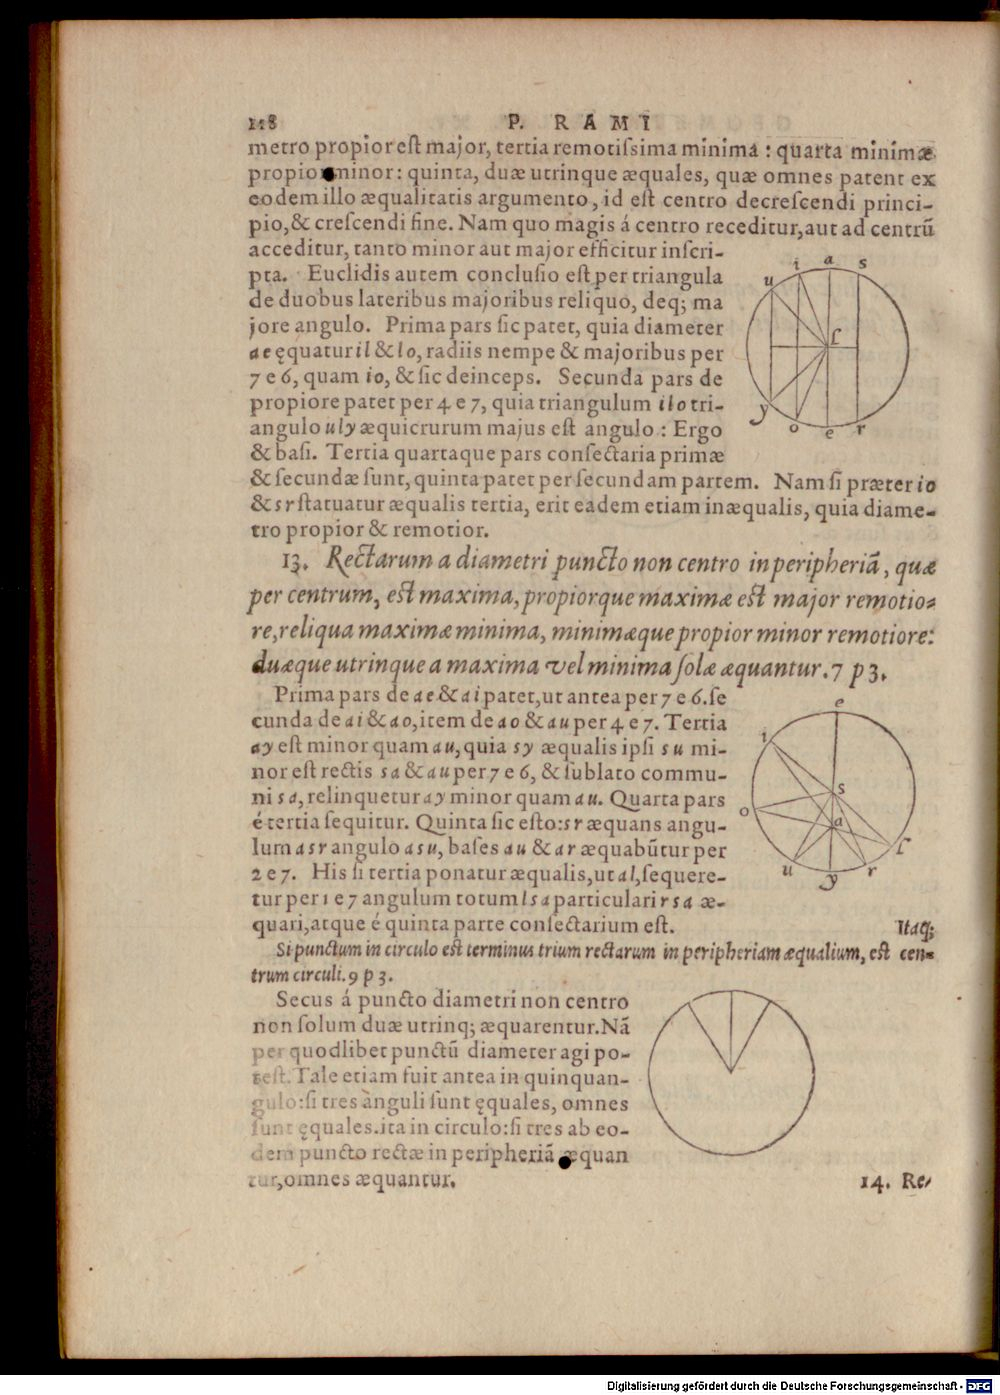 118 P. RAMI
metro propior est major, tertia remotissima minima : quarta minimæ
propior minor : quinta, duæ utrinque æquales, quæ omnes patent ex
eodem illo æqualitatis argumento, id est centro decrescendi princi-
pio, & crescendi fine. Nam quo magis á centro receditur, aut ad centrũ
acceditur, tanto minor aut major efficitur inscri-
pta. Euclidis autem conclusio est per triangula
de duobus lateribus majoribus reliquo, deq; ma
jore angulo. Prima pars sic patet, quia diameter
ae ęquatur il & lo, radiis nempe & majoribus per
7 e 6, quam io, & sic deinceps. Secunda pars de
propiore patet per 4 e 7, quia triangulum ilo tri-
angulo uly æquicrurum majus est angulo : Ergo
& basi. Tertia quartaque pars consectaria primæ
& secundæ sunt, quinta patet per secundam partem. Nam si præter io
& sr statuatur æqualis tertia, erit eadem etiam inæqualis, quia diame-
tro propior & remotior.
i a s
u
l
y
o e r
13. Rectarum a diametri puncto non centro in peripheriã, quæ
per centrum, est maxima, propiorque maximæ est major remotio-
re, reliqua maximæ minima, minimæque propior minor remotiore:
duæque utrinque a maxima vel minima solæ æquantur. 7 p 3.
Prima pars de ae & ai patet, ut antea per 7 e 6. se
cunda de ai & ao, item de ao & au per 4 e 7. Tertia
ay est minor quam au, quia sy æqualis ipsi su mi-
nor est rectis sa & au per 7 e 6, & sublato commu-
ni sa, relinquetur ay minor quam au. Quarta pars
é tertia sequitur. Quinta sic esto: sr æquans angu-
lum asr angulo asu, bases au & ar æquabũtur per
2 e 7. His si tertia ponatur æqualis, ut al, sequere-
tur per 1 e 7 angulum totum lsa particulari rsa æ-
quari, atque é quinta parte consectarium est. Itaq;
e
i
s
o
a
l
u y r
Si punctum in circulo est terminus trium rectarum in peripheriam æqualium, est cen-
trum circuli. 9 p 3.
Secus á puncto diametri non centro
non solum duæ utrinq; æquarentur. Nã
per quodlibet punctũ diameter agi po-
test. Tale etiam fuit antea in quinquan-
gulo: si tres anguli sunt ęquales, omnes
sunt ęquales. ita in circulo: si tres ab eo-
dem puncto rectæ in peripheriã æquan
tur, omnes æquantur.
14. Re-
Digitalisierung gefördert durch die Deutsche Forschungsgemeinschaft - DFG